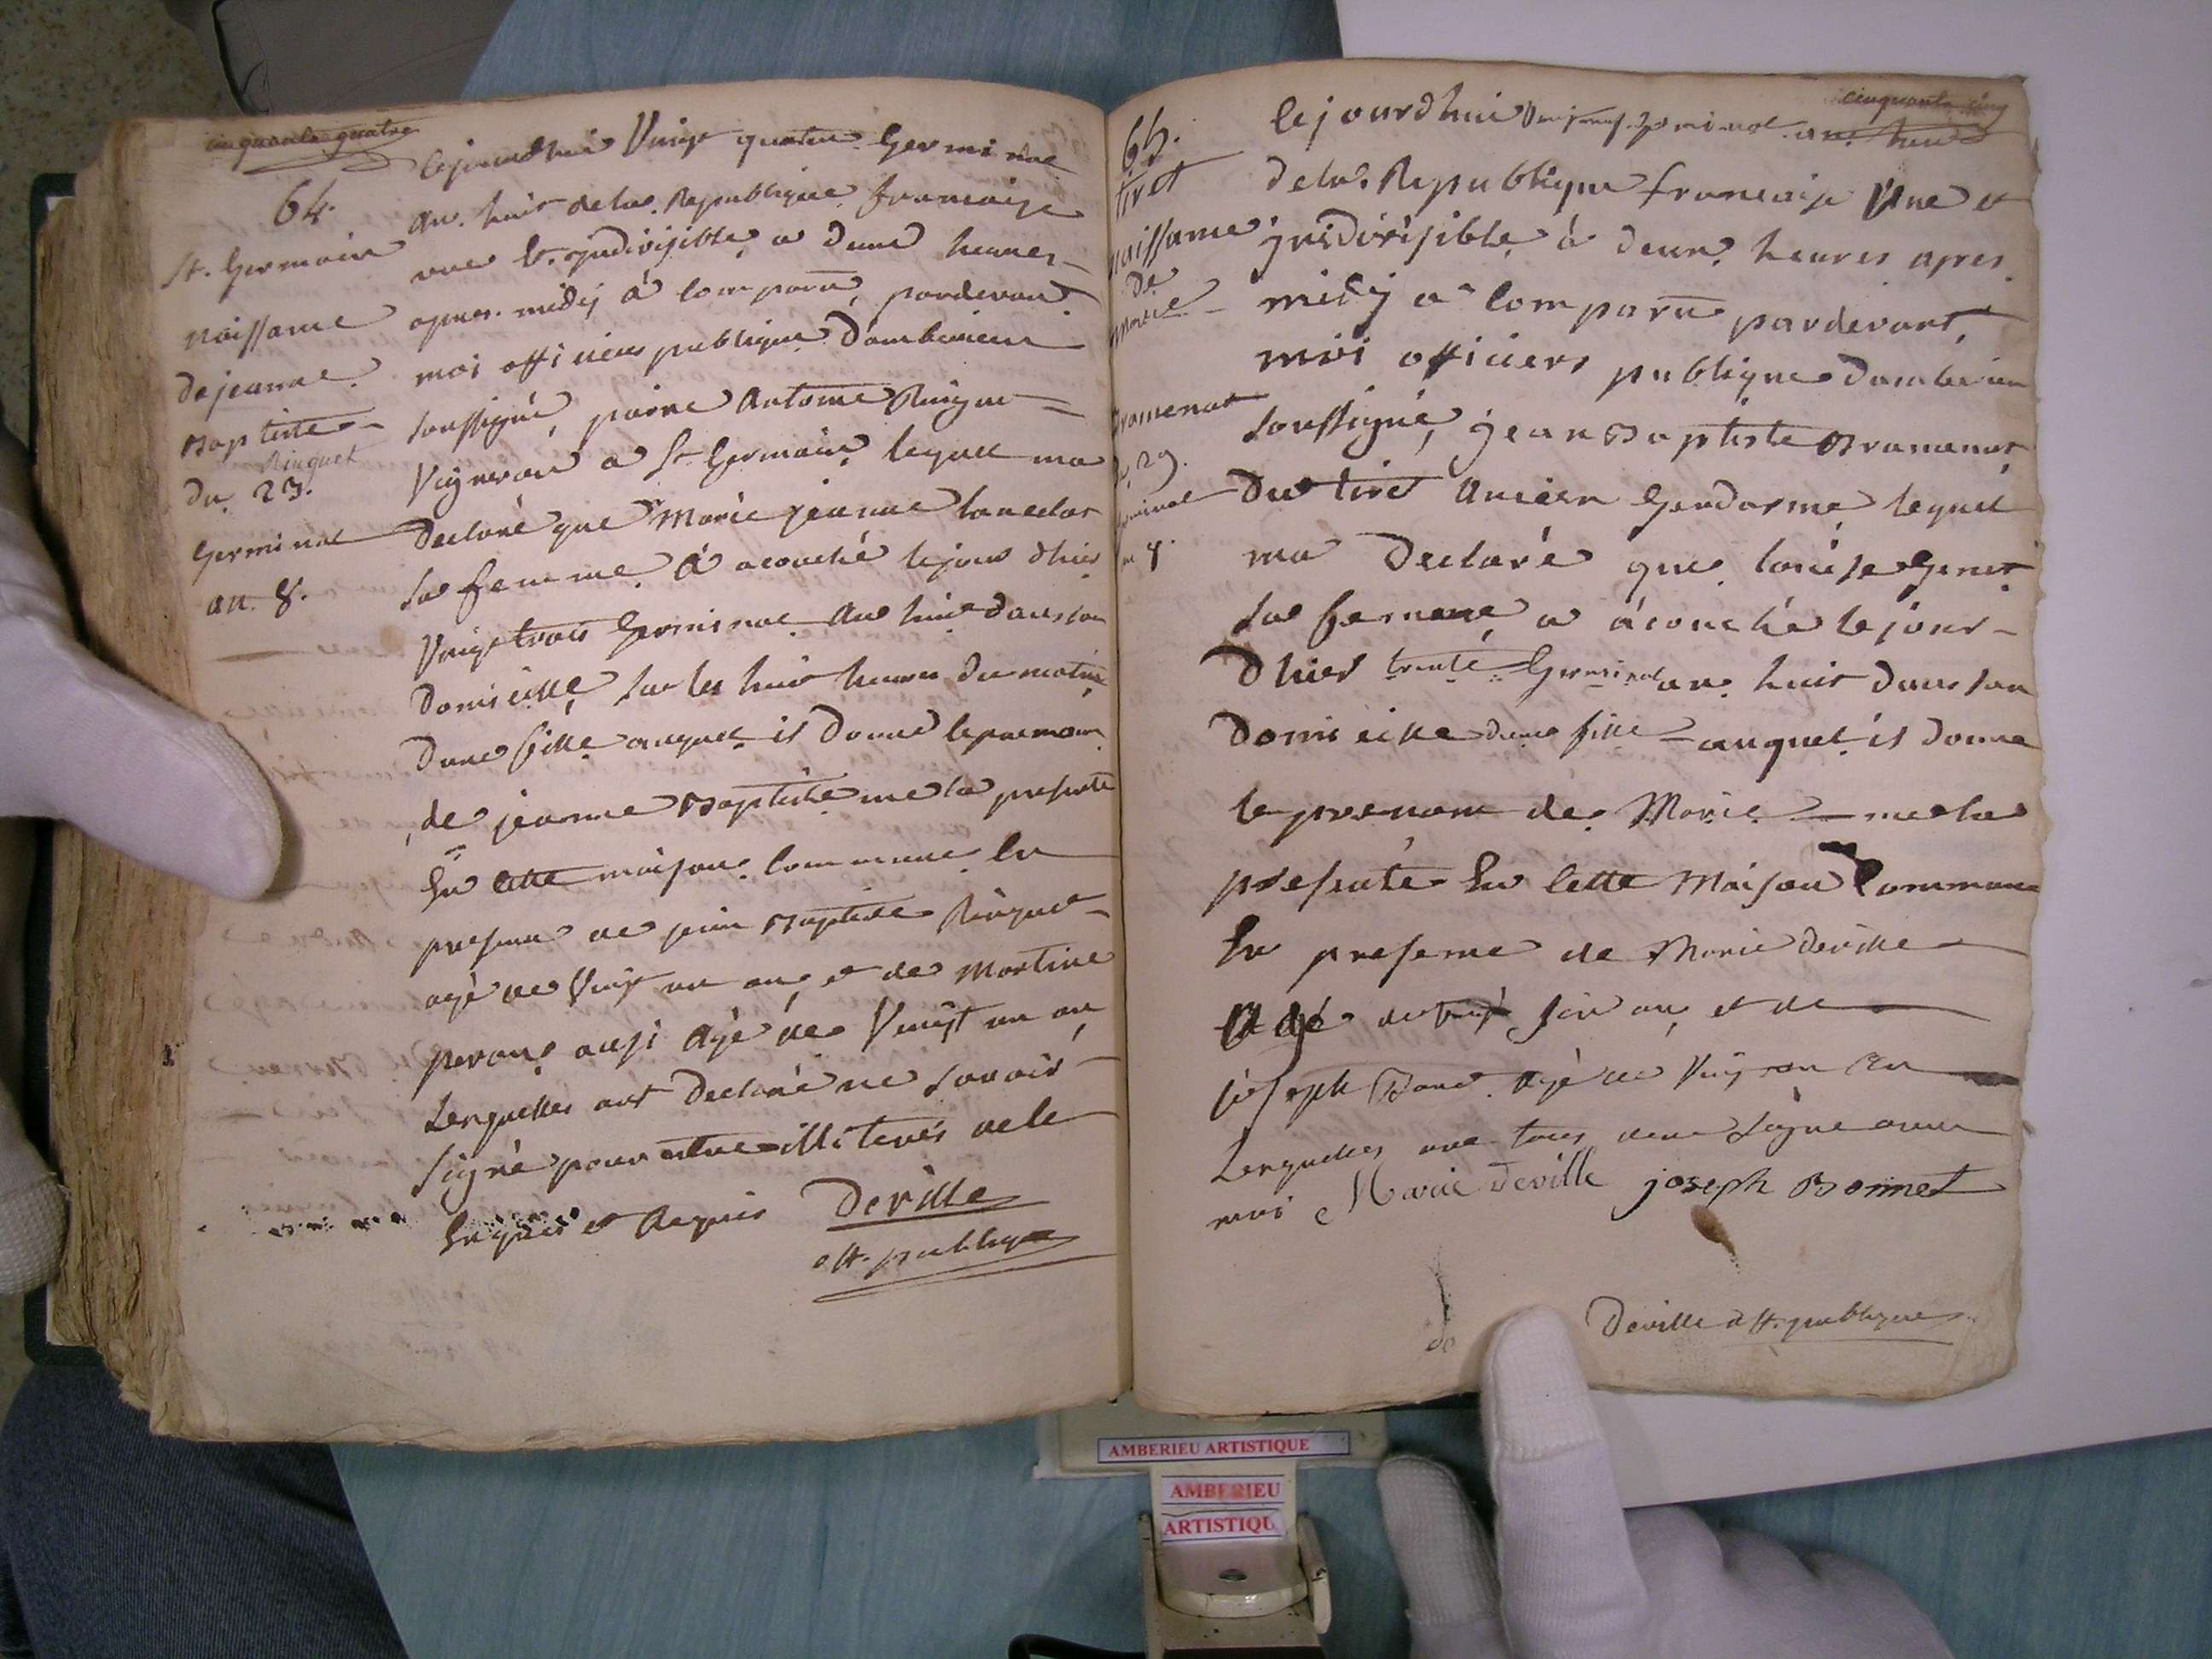 cinquante quatre
64.
St. Germain
naissance
de jeanne
Baptiste
Ringuet
du 23.
Germinal
an. 8.
Cejourdhui Vingt quatre Germinal
an. huit de la Republique francaise
une et indivisible, a deux heures
apres midÿ à comparu, pardevant
moi officiers publique dambérieu
soussigné, pierre Antoine Ringuet
Vigneron a St Germain lequel ma
Declaré que Marie jeanne
sa femme à acouché le jour dhier
Vingt trois Germinal an huit dans son
Domicille, sur les huit heures du matin
dune fille auquel il donne le prenom
de jeanne Baptiste me la presenté
En cette maison Commune En
presence de jean Baptiste Ringuet
agé de Vingt un an, et de Martine
peronc ausi agé de Vingt un an
Lesquelles ont declaré ne savoir
signé pour etre illiterés de ce
Enquis et Requis Deville
off. publique
cinquante cinq
65.
tiret
naissance
de
Marie
Bramenat
du 29.
Germinal
an 8.
Cejourdhui Germinal an huit
de la Republique francaise Une et
jndivisible à deux heures apres
midÿ a Comparu pardevant,
moi officiers publique dambérieu
soussigné, jean Baptiste Bramenat,
du tiret ancien Gendarme lequel
ma Declaré que louise
sa femme, a àcouché le jour
dhier trente Germinal an huit dans son
Domicille dune fille auquel il donne
le prenom de Marie me la
presenté En cette Maison Commune
En presence de Marie deville
Agé de six an, et de
joseph agé de Vingt un an
Lesquelles ont tous deux signé avec
moi Marie Deville joseph Bonnet
Deville off. publique
AMBERIEU ARTISTIQUE
AMBERIEU
ARTISTIQU